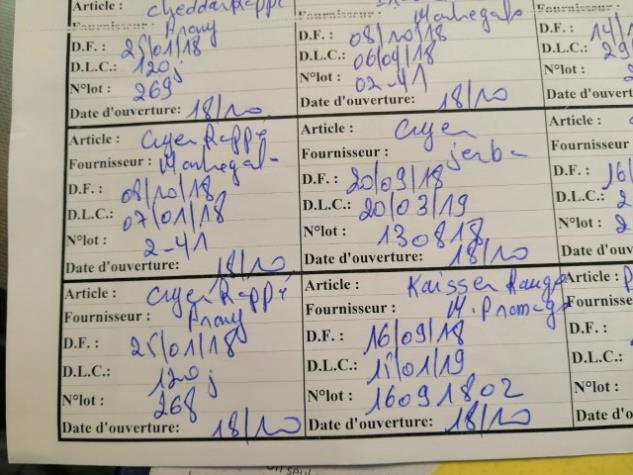 Article : cheddar Rappé
Fournisseur : Prany
D.F. : 25/01/18
D.L.C.: 120 j
N°lot : 269
Date d'ouverture: 18/10
Fournisseur :
D.F. : 08/10/18
D.L.C.: 06/04/18
N°lot : 02-41
Date d'ouverture: 18/10
D.F. : 14/1
D.L.C.: 29
N°lot :
Date d'ouvert
Article : Gryer Rappé
Fournisseur :
D.F. : 08/10/18
D.L.C.: 07/01/18
N°lot : 2-41
Date d'ouverture: 18/10
Article : Gryer
Fournisseur : jerba
D.F. : 20/09/18
D.L.C.: 20/03/19
N°lot : 130818
Date d'ouverture: 18/10
Article :
Fournisse
D.F. : 16/
D.L.C.: 2
N°lot : 2
Date d'ouv
Article : Gryer Rappé
Fournisseur : Prany
D.F. : 25/01/18
D.L.C.: 120 j
N°lot : 268
Date d'ouverture: 18/10
Article : Kaisser Rouge
Fournisseur :
D.F. : 16/09/18
D.L.C.: 15/01/19
N°lot : 16091802
Date d'ouverture: 18/10
Article :
Fournisse
D.F. :
D.L.C.:
N°lot :
Date d'o